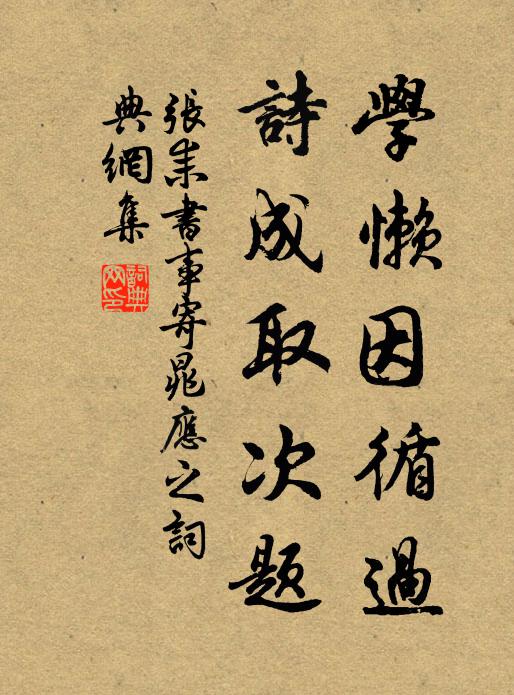 學懶因循過
詩成取次題
張耒書事寄晁應之詞
典網集
詞典
网印